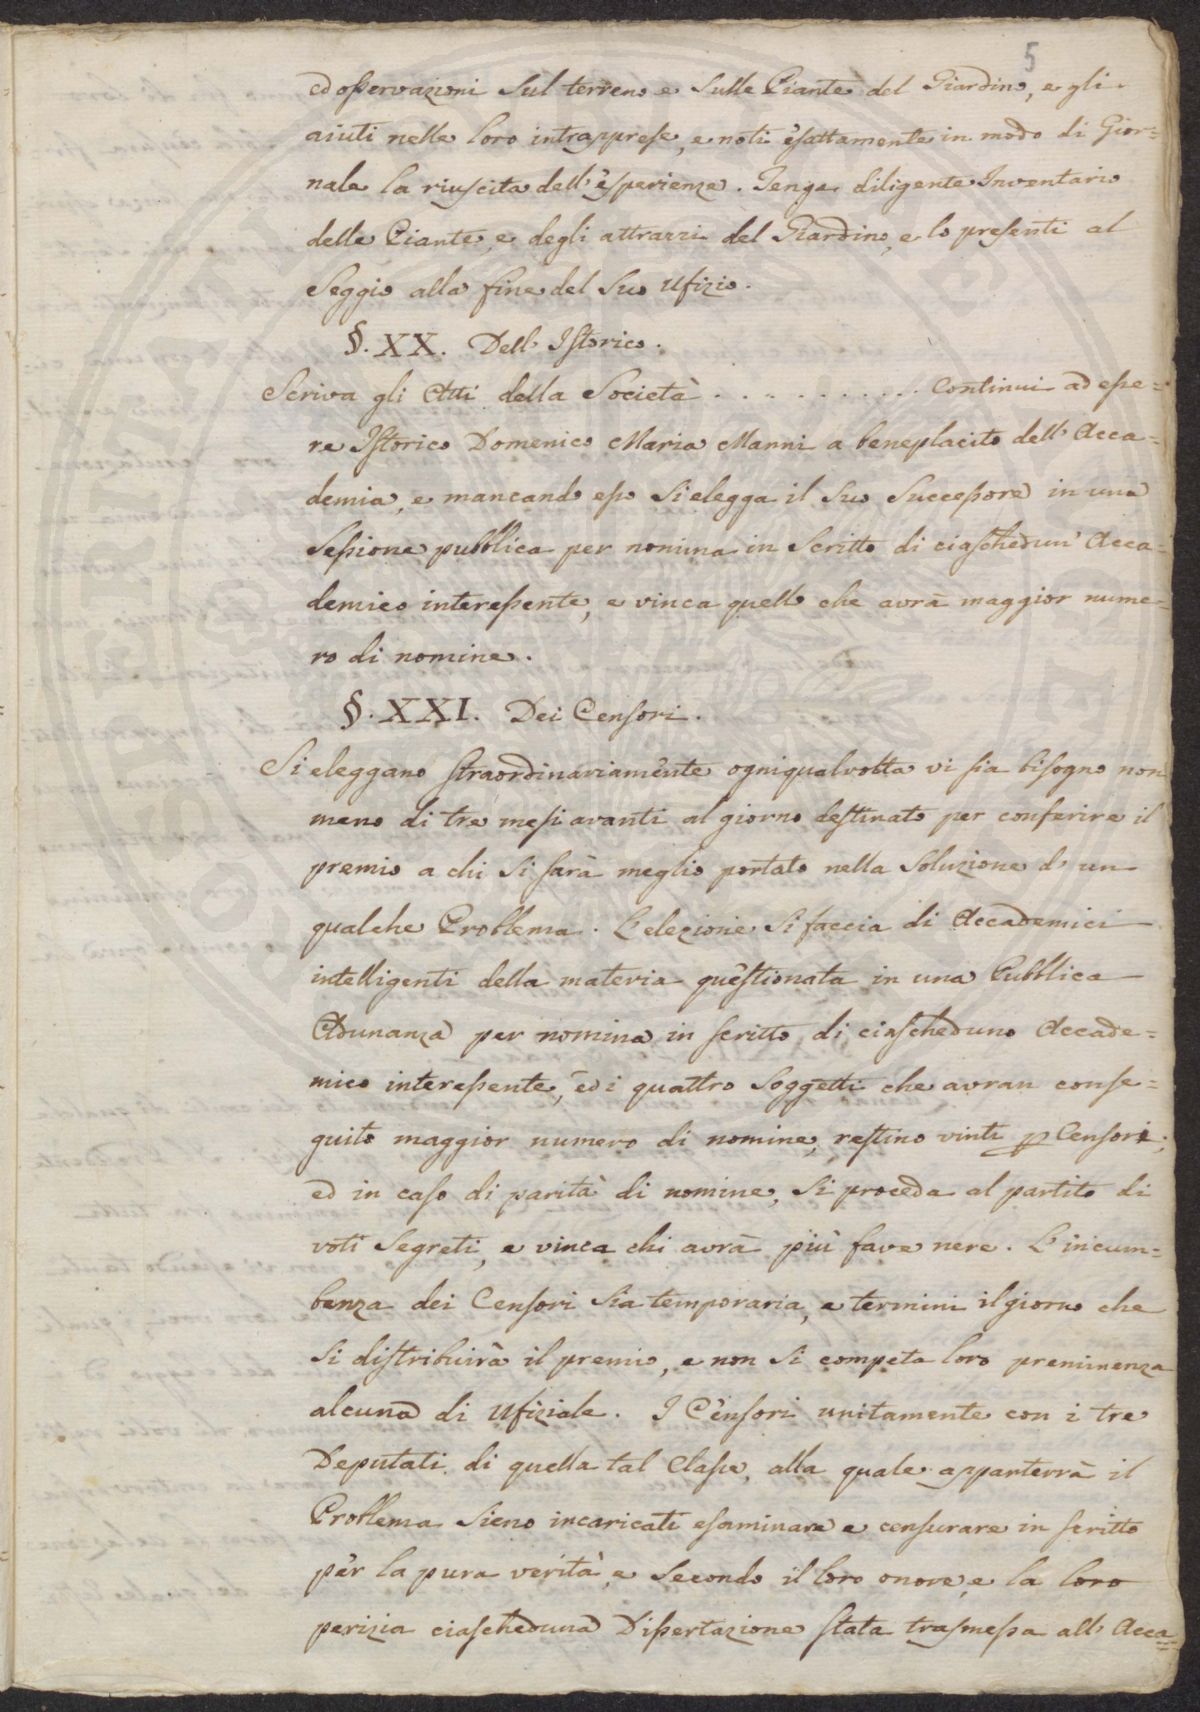 5
ed osservazioni sul terreno e sulle Piante del Giardino, e gli
aiuti nelle loro intrapprese, e noti esattamente in modo di Gior=
nale la riuscita dell'esperienze. Tenga diligente Inventario
delle Piante, e degli attrazzi del Giardino, e lo presenti al
Seggio alla fine del suo Ufizio.
§. XX. Dell' Istorico.
Scriva gli Atti della Società . . . . . . . . . . Continui ad esse=
re Istorico Domenico Maria Manni a beneplacito dell' Acca=
demia, e mancando esso si elegga il suo Successore in una
Sessione pubblica per nomina in scritto di ciaschedun' Acca=
demico interessente, e vinca quello che avrà maggior nume=
ro di nomine.
§. XXI. Dei Censori.
Si eleggano straordinariamente ogniqualvolta vi sia bisogno non
meno di tre mesi avanti al giorno destinato per conferire il
premio a chi si sarà meglio portato nella soluzione d' un
qualche Problema. L'elezione si faccia di Accademici
intelligenti della materia questionata in una Pubblica
Adunanza per nomina in scritto di ciascheduno Accade=
mico interessente, ed i quattro Soggetti che avran conse=
guito maggior numero di nomine, restino vinti p Censori;
ed in caso di parità di nomine, si proceda al partito di
voti segreti, e vinca chi avrà più fave nere. L'incum=
benza dei Censori sia temporaria, e termini il giorno che
si distribuirà il premio, e non si competa loro preminenza
alcuna di Ufiziale. I Censori unitamente con i tre
Deputati di quella tal Classe, alla quale apparterrà il
Problema sieno incaricati esaminare e censurare in scritto
per la pura verità, e secondo il loro onore, e la loro
perizia ciascheduna Dissertazione stata trasmessa all' Acca=